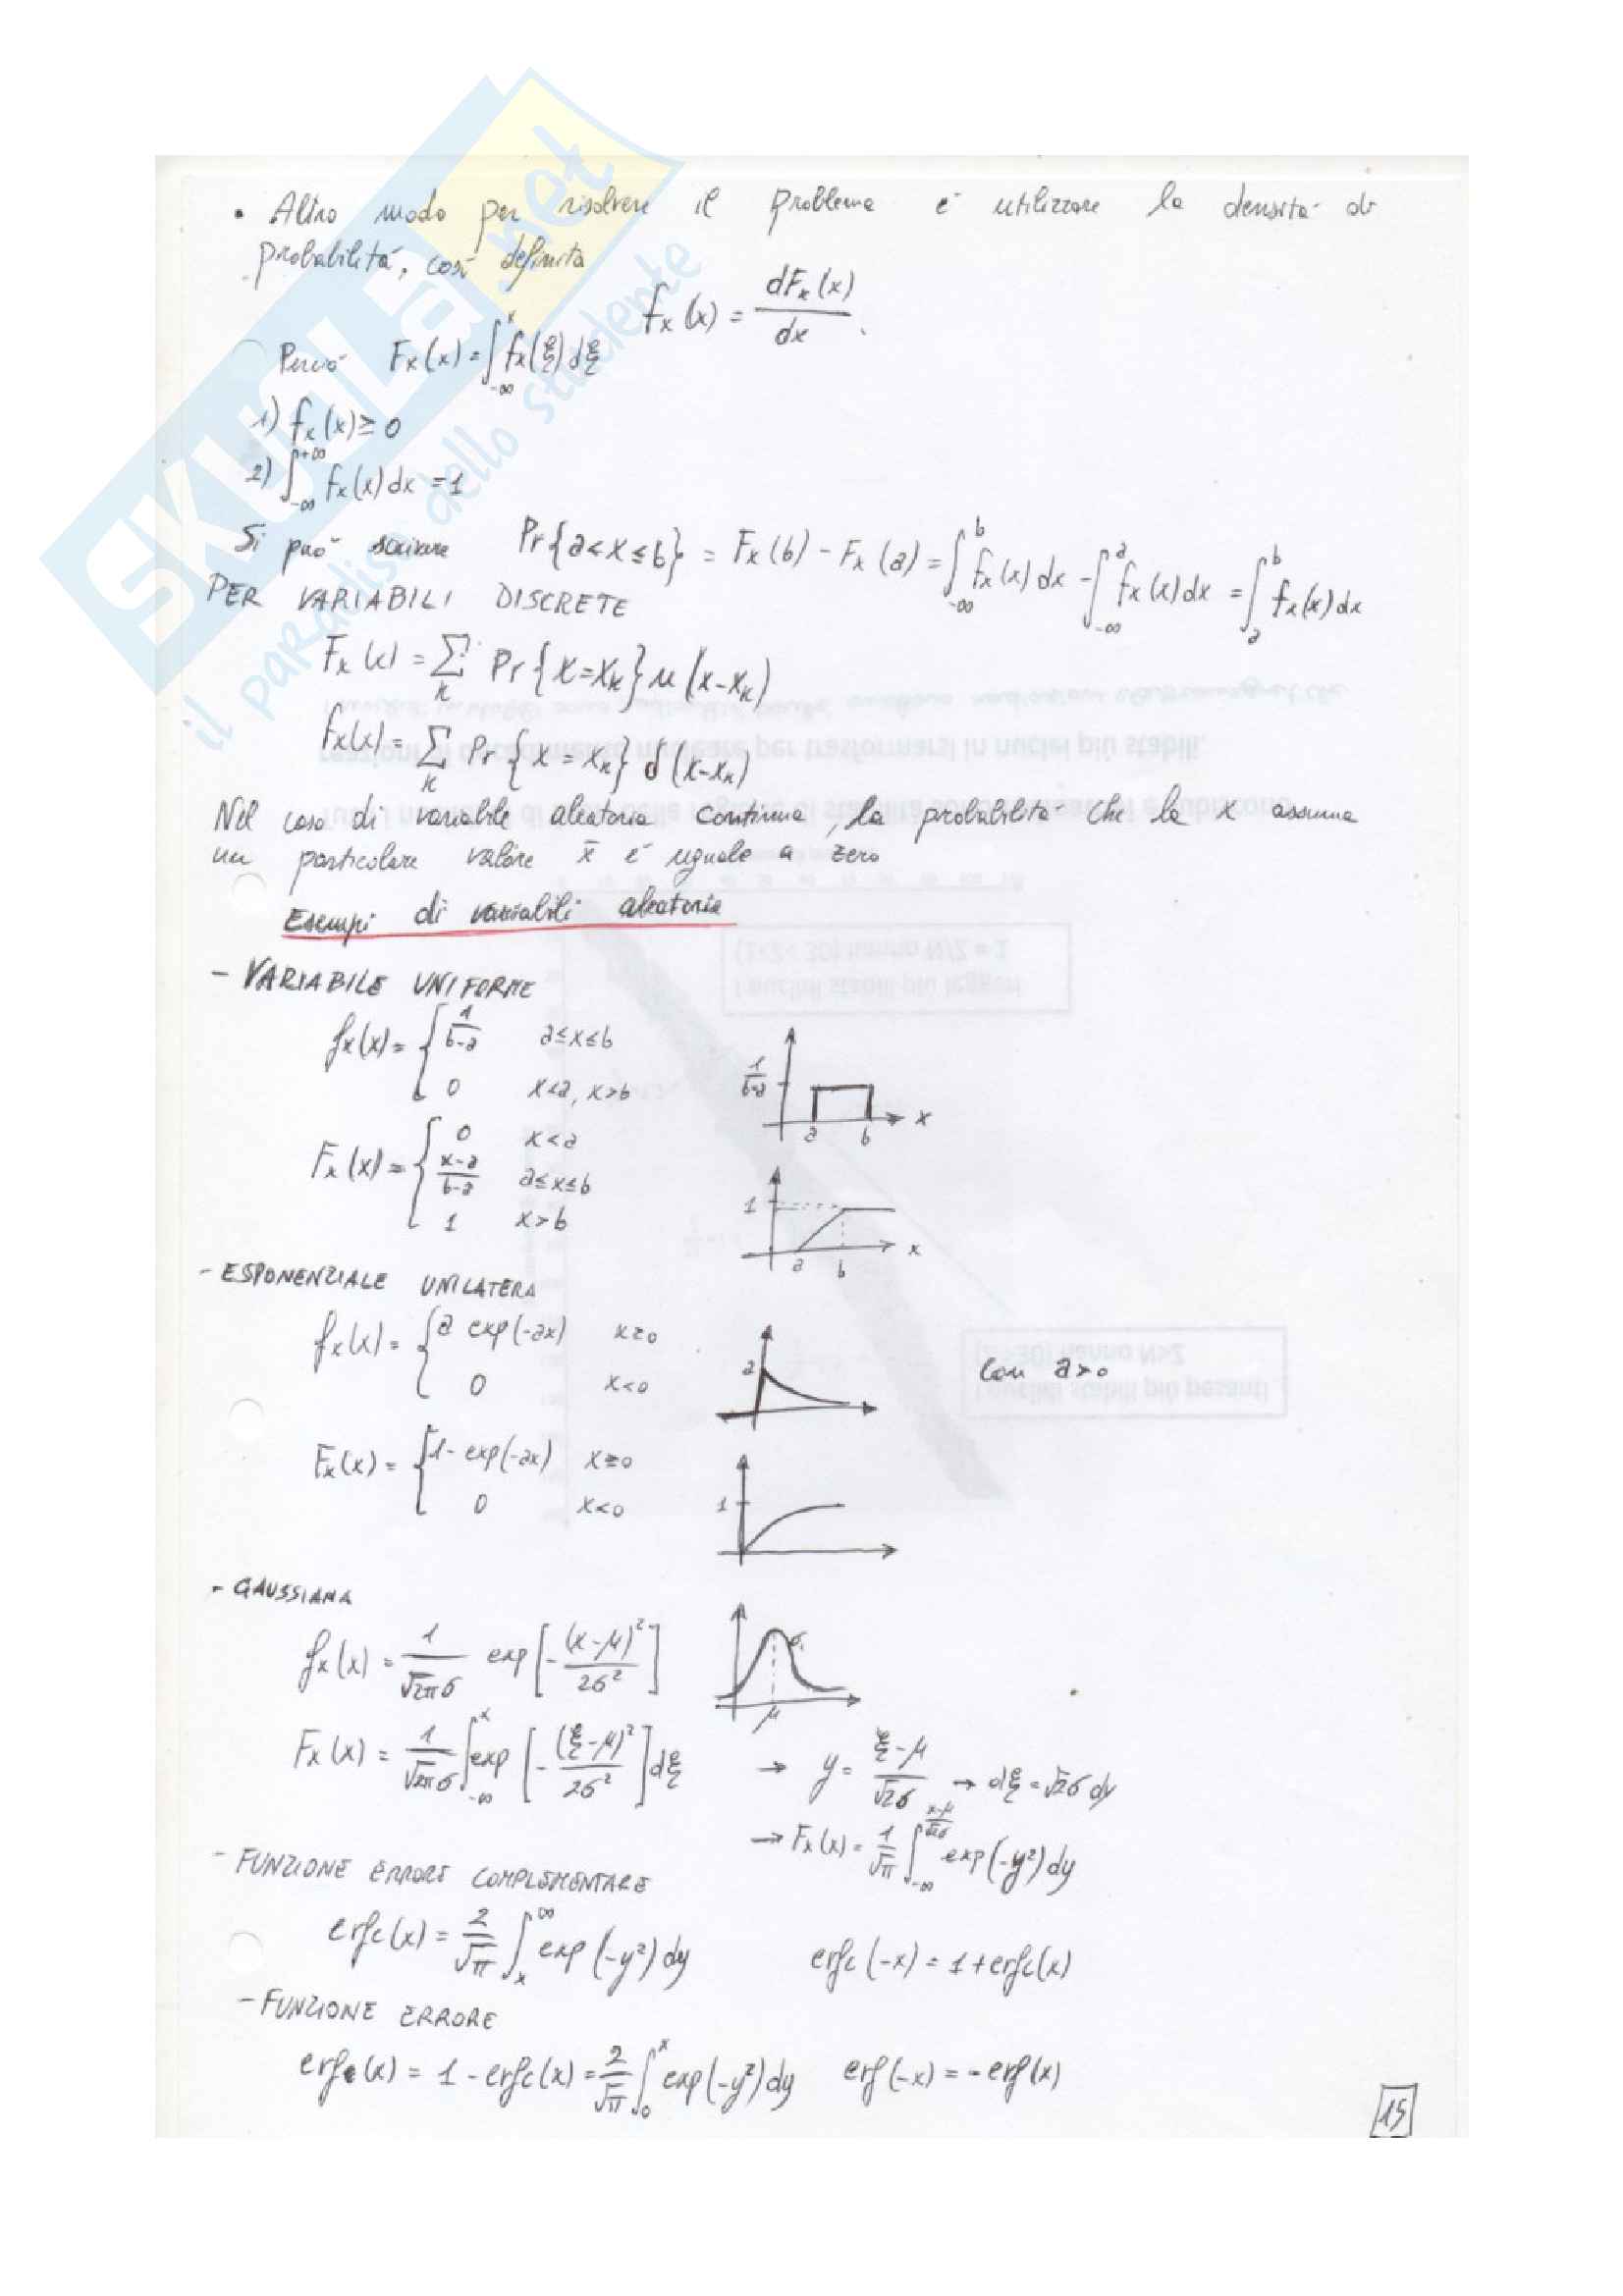 • Altro modo per risolvere il problema é utilizzare la densitá di
probabilitá, cosí definita
fx(x) = dFx(x)/dx.
Perció Fx(x) = ∫_{-∞}^{x} fx(ξ)dξ
1) fx(x) ≥ 0
2) ∫_{-∞}^{+∞} fx(x)dx = 1
Si puó scrivere Pr{a<x≤b} = Fx(b) - Fx(a) = ∫_{-∞}^{b} fx(x)dx - ∫_{-∞}^{a} fx(x)dx = ∫_{a}^{b} fx(x)dx
PER VARIABILI DISCRETE
Fx(x) = Σ_k Pr{x=xk} u(x-xk)
fx(x) = Σ_k Pr{x=xk} d(x-xk)
Nel caso di variabile aleatoria continua, la probabilitá che la x assuma
un particolare valore x̄ é uguale a zero
Esempi di variabili aleatorie
- VARIABILE UNIFORME
fx(x) = { 1/(b-a) a≤x≤b
0 x<a, x>b
1/(b-a) a b x
Fx(x) = { 0 x<a
(x-a)/(b-a) a≤x≤b
1 x>b
1 a b x
- ESPONENZIALE UNILATERA
fx(x) = { a exp(-ax) x≥0
0 x<0
a
Con a>0
Fx(x) = { 1-exp(-ax) x≥0
0 x<0
1
- GAUSSIANA
fx(x) = 1/(√2π σ) exp[-(x-μ)²/2σ²]
σ μ
Fx(x) = 1/(√2π σ) ∫_{-∞}^{x} exp[-(ξ-μ)²/2σ²]dξ → y = (ξ-μ)/(√2σ) → dξ = √2σ dy
→ Fx(x) = 1/√π ∫_{-∞}^{(x-μ)/√2σ} exp(-y²)dy
- FUNZIONE ERRORE COMPLEMENTARE
erfc(x) = 2/√π ∫_{x}^{∞} exp(-y²)dy erfc(-x) = 1+erfc(x)
- FUNZIONE ERRORE
erf(x) = 1 - erfc(x) = 2/√π ∫_{0}^{x} exp(-y²)dy erf(-x) = -erf(x)
15
SKUOLA.net
il paradiso dello studente